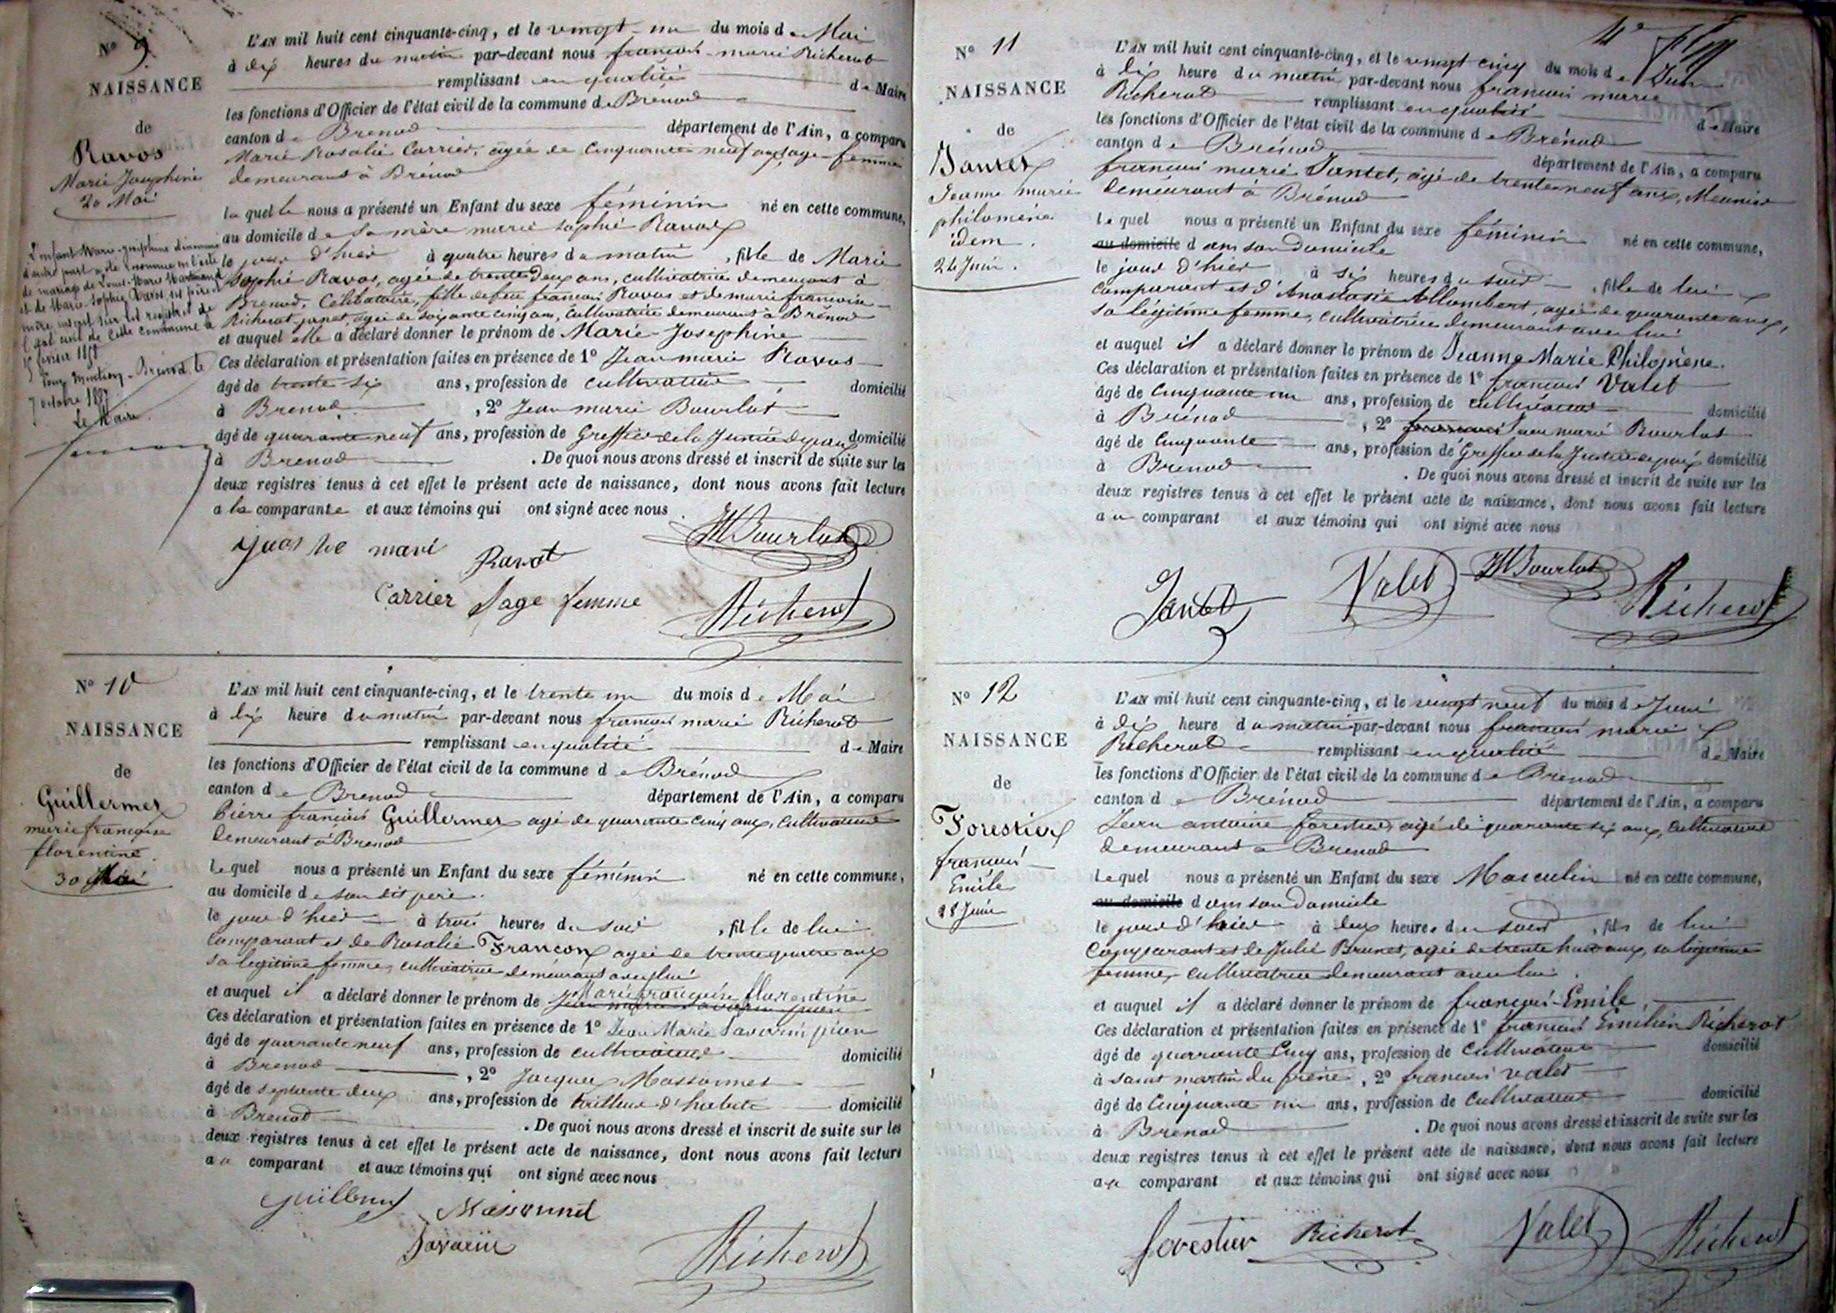 N° 9.
NAISSANCE
de
Ravos
Marie Josephine
20 Mai
L'AN mil huit cent cinquante-cinq, et le vingt-un du mois de Mai
à dix heures du matin par-devant nous françois-marie Richerot
remplissant en qualité de Maire
les fonctions d'Officier de l'état civil de la commune de Brénod
canton de Brenod département de l'Ain, a comparu
Marie Rosalie Carrier, agée de cinquante neuf ans, sage-femme
demeurant à Brénod
la quelle nous a présenté un Enfant du sexe féminin né en cette commune,
au domicile de sa mère marie sophie Ravos
le jour d'hier à quatre heures du matin, fille de Marie
Sophie Ravos, agée de trente deux ans, cultivatrice demeurant à
Brenod, Célibataire, fille de feu francois Ravos et de marie francoise
Richerot janet, agée de soixante cinq ans, cultivatrice demeurant à Brénod
et auquel elle a déclaré donner le prénom de Marie-Josephine
Ces déclaration et présentation faites en présence de 1° Jean marie Ravos
âgé de trente six ans, profession de cultivateur domicilié
à Brenod, 2° Jean marie Bourlot
âgé de quarante neuf ans, profession de Greffier de la Justice de paix domicilié
à Brenod. De quoi nous avons dressé et inscrit de suite sur les
deux registres tenus à cet effet le présent acte de naissance, dont nous avons fait lecture
a la comparante et aux témoins qui ont signé avec nous
L'enfant Marie-Josephine dénommée
d'autre part a été reconnue en l'acte
de mariage de Louis-Marie
et de Marie Sophie Ravos, ses père et
mère inscrit sur les registres de
l'état civil de cette commune le
février
Pour mention - Brénod le
7 octobre 1887
Le Maire
mari Ravot
JM Bourlot
Carrier Sage femme
Richerot
N° 10
NAISSANCE
de
Guillermet
marie françoise
florentine
30 Mai
L'AN mil huit cent cinquante-cinq, et le trente un du mois de Mai
à dix heure du matin par-devant nous francois marie Richerot
remplissant en qualité de Maire
les fonctions d'Officier de l'état civil de la commune de Brénod
canton de Brenod département de l'Ain, a comparu
Pierre francois Guillermet agé de quarante cinq ans, cultivateur
demeurant à Brenod
lequel nous a présenté un Enfant du sexe féminin né en cette commune,
au domicile de son dit père.
le jour d'hier à trois heures du soir, fille de lui
comparant et de Rosalie Francon agée de trente quatre ans
sa legitime femme, cultivatrice demeurant avec lui
et auquel il a déclaré donner le prénom de Marie françoise florentine
Ces déclaration et présentation faites en présence de 1° Jean Marie Savarin pion
âgé de quarante neuf ans, profession de cultivateur domicilié
à Brenod, 2° Jacques Massonnet
âgé de septante deux ans, profession de tailleur d'habits domicilié
à Brenod. De quoi nous avons dressé et inscrit de suite sur les
deux registres tenus à cet effet le présent acte de naissance, dont nous avons fait lecture
au comparant et aux témoins qui ont signé avec nous
Massonnet
Savarin
Richerot
4e
N° 11
NAISSANCE
de
Jantet
Jeanne marie
philomène
idem.
24 Juin.
L'AN mil huit cent cinquante-cinq, et le vingt cinq du mois de Juin
à dix heure du matin par-devant nous francois marie
Richerot remplissant en qualité de Maire
les fonctions d'Officier de l'état civil de la commune de Brénod
canton de Brénod département de l'Ain, a comparu
francois marie Jantet, agé de trente neuf ans, Meunier
demeurant à Brénod
lequel nous a présenté un Enfant du sexe féminin né en cette commune,
au domicile dans son Domicile
le jour d'hier à six heures du soir, fille de lui
comparant et d'Anastasie Allombert, agée de quarante ans,
sa légitime femme, cultivatrice demeurant avec lui
et auquel il a déclaré donner le prénom de Jeanne Marie Philomène.
Ces déclaration et présentation faites en présence de 1° francois Valet
âgé de cinquante un ans, profession de cultivateur domicilié
à Brénod, 2° Jean marie Bourlot
âgé de cinquante ans, profession de Greffier de la Justice de paix domicilié
à Brenod. De quoi nous avons dressé et inscrit de suite sur les
deux registres tenus à cet effet le présent acte de naissance, dont nous avons fait lecture
au comparant et aux témoins qui ont signé avec nous
Jantet Valet JM Bourlot Richerot
N° 12
NAISSANCE
de
Forestier
francois
Emile
28 Juin
L'AN mil huit cent cinquante-cinq, et le vingt neuf du mois de Juin
à dix heure du matin par-devant nous francois marie
Richerot remplissant en qualité de Maire
les fonctions d'Officier de l'état civil de la commune de Brenod
canton de Brénod département de l'Ain, a comparu
Jean antoine forestier, agé de quarante six ans, cultivateur
demeurant à Brenod
lequel nous a présenté un Enfant du sexe Masculin né en cette commune,
au domicile dans son Domicile
le jour d'hier à deux heures du soir, fils de lui
comparant et de Julie Brunet, agée de trente huit ans, sa légitime
femme, cultivatrice demeurant avec lui.
et auquel il a déclaré donner le prénom de françois-Emile.
Ces déclaration et présentation faites en présence de 1° francois Emilien Richerot
âgé de quarante cinq ans, profession de cultivateur domicilié
à saint martin du frène, 2° francois valet
âgé de cinquante un ans, profession de cultivateur domicilié
à Brenod. De quoi nous avons dressé et inscrit de suite sur les
deux registres tenus à cet effet le présent acte de naissance, dont nous avons fait lecture
au comparant et aux témoins qui ont signé avec nous
forestier Richerot Valet Richerot